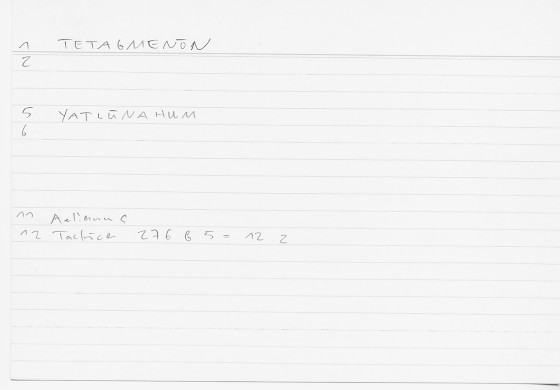 1 TETAGMENŌN
2
5 YATLŪNAHUM
6
11 Aelianus
12 Tactica 276 B 5 = 12 2